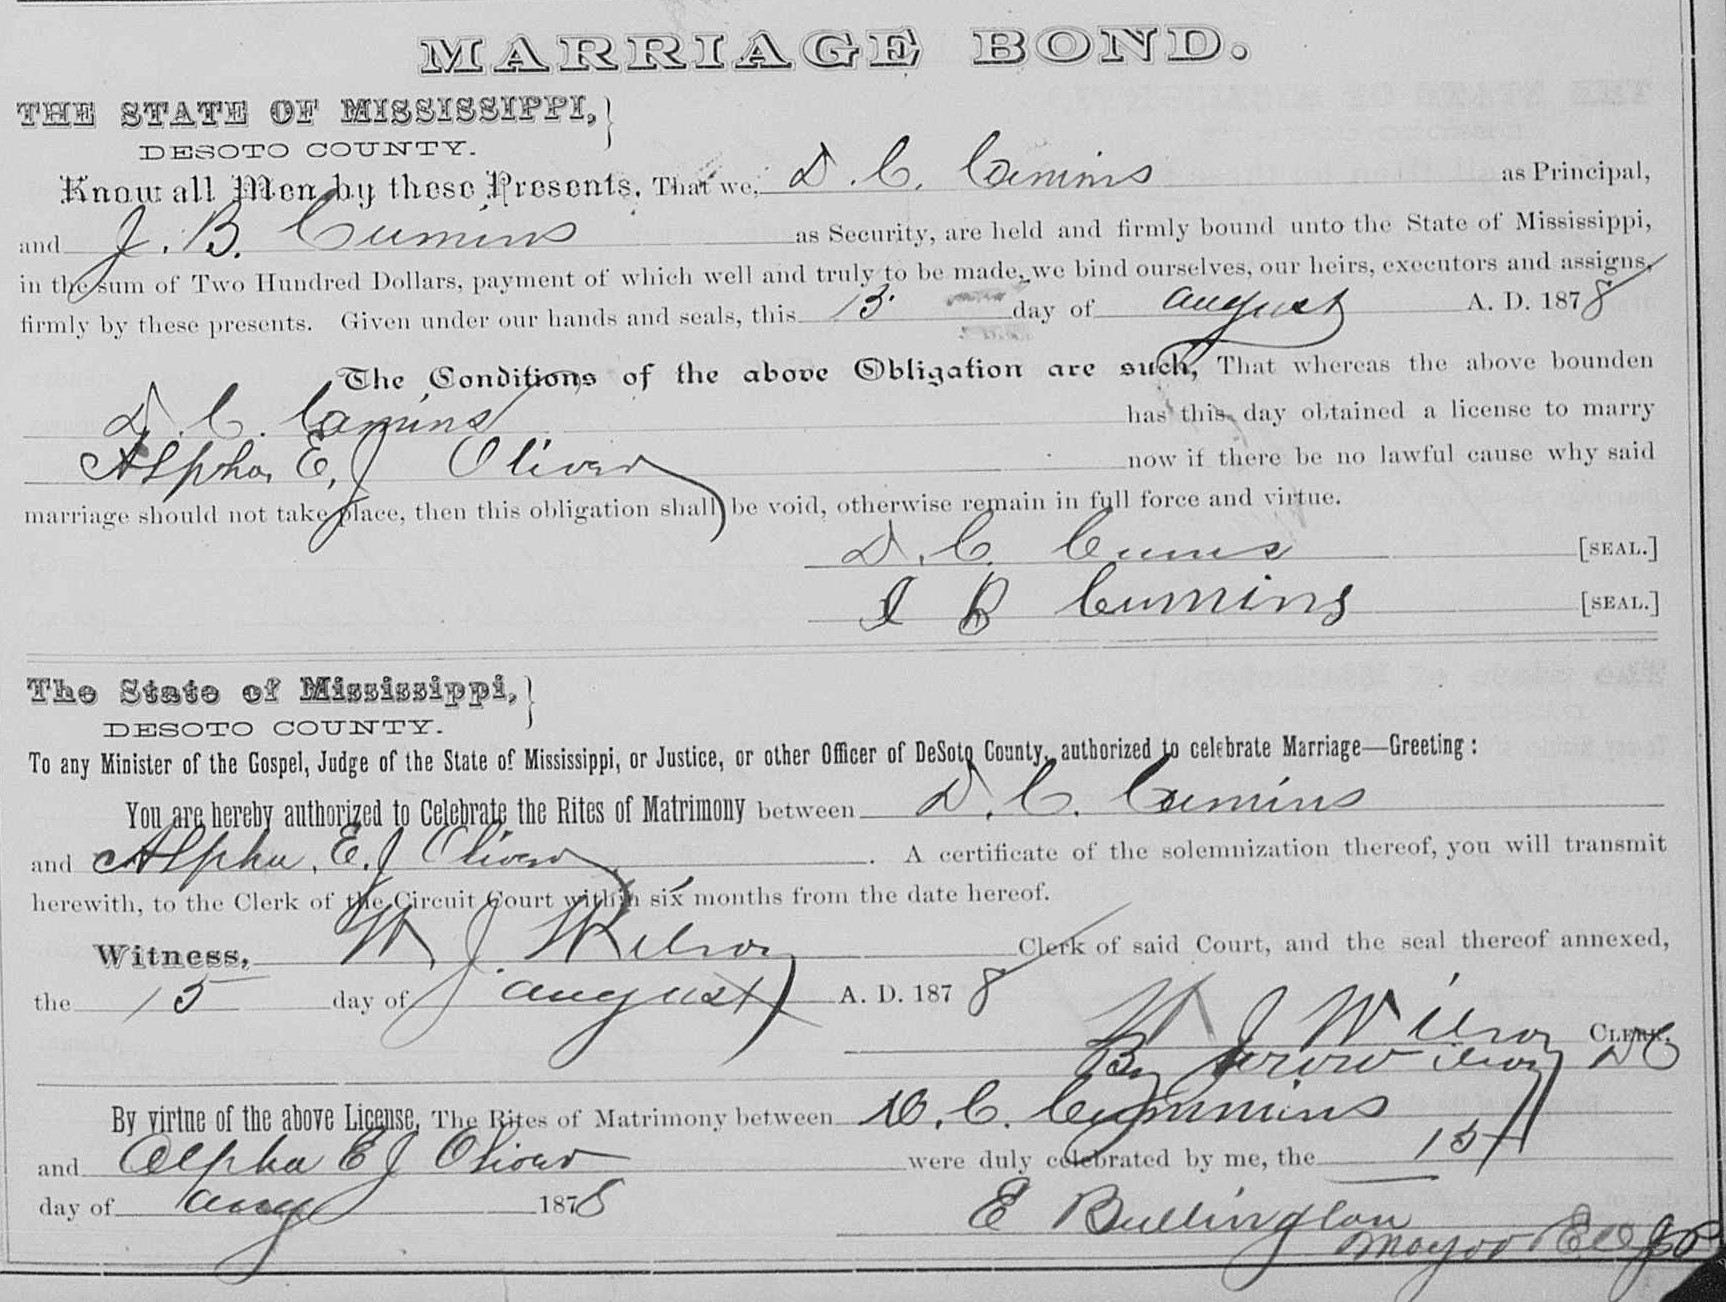 MARRIAGE BOND.
THE STATE OF MISSISSIPPI,
DESOTO COUNTY.
Know all Men by these Presents, That we, D. C. Cumins as Principal,
and J. B. Cumins as Security, are held and firmly bound unto the State of Mississippi,
in the sum of Two Hundred Dollars, payment of which well and truly to be made, we bind ourselves, our heirs, executors and assigns,
firmly by these presents. Given under our hands and seals, this 13 day of august A. D. 1878
The Conditions of the above Obligation are such, That whereas the above bounden
D. C. Cumins has this day obtained a license to marry
Alpha, E, J Oliver now if there be no lawful cause why said
marriage should not take place, then this obligation shall be void, otherwise remain in full force and virtue.
D. C. [SEAL.]
J B Cumins [SEAL.]
The State of Mississippi,
DESOTO COUNTY.
To any Minister of the Gospel, Judge of the State of Mississippi, or Justice, or other Officer of DeSoto County, authorized to celebrate Marriage—Greeting:
You are hereby authorized to Celebrate the Rites of Matrimony between D. C. Cumins
and Alpha, E. J Oliver. A certificate of the solemnization thereof, you will transmit
herewith, to the Clerk of the Circuit Court within six months from the date hereof.
Witness, W. J. Wilson Clerk of said Court, and the seal thereof annexed,
the 15 day of august A. D. 1878
W J Wilson CLERK.
By DC
By virtue of the above License, The Rites of Matrimony between D. C. Cummins
and Alpha E J Oliver were duly celebrated by me, the 15
day of aug 1878
E Bullington
Mayor